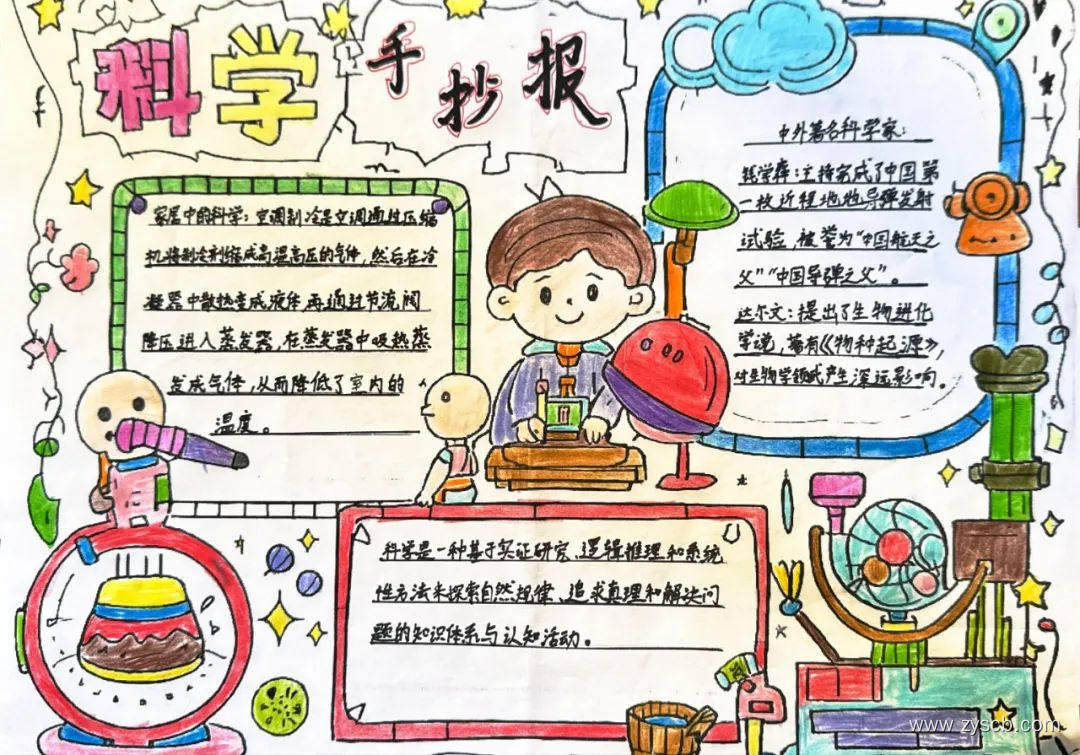 科学
手抄报
家居中的科学：空调制冷是空调通过压缩
机将制冷剂缩成高温高压的气体，然后在冷
凝器中散热变成液体，再通过节流阀
降压进入蒸发器，在蒸发器中吸热蒸
发成气体，从而降低了室内的
温度。
中外著名科学家：
钱学森：主持完成了中国第
一枚近程地地导弹发射
试验，被誉为“中国航天之
父”“中国导弹之父”。
达尔文：提出了生物进化
学说，著有《物种起源》，
对生物学领域产生深远影响。
科学是一种基于实证研究、逻辑推理和系统
性方法来探索自然规律、追求真理和解决问
题的知识体系与认知活动。
www.zyscb.com